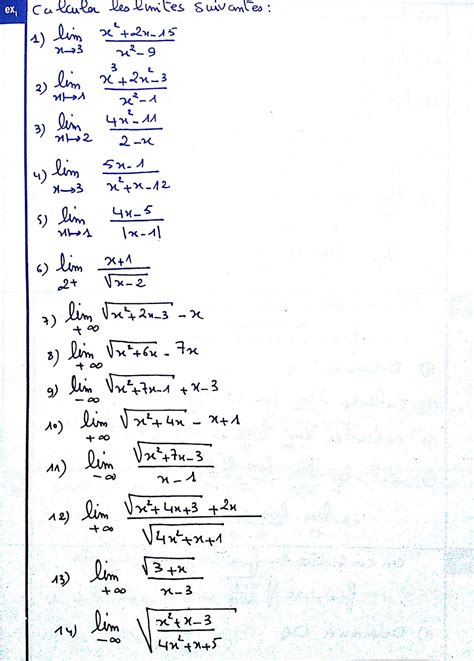 ex1 Calculer les limites suivantes :
1) lim x→3 (x²+2x-15)/(x²-9)
2) lim x↦1 (x³+2x²-3)/(x²-1)
3) lim x↦2 (4x²-11)/(2-x)
4) lim x→3 (5x-1)/(x²+x-12)
5) lim x↦1 (4x-5)/|x-1|
6) lim 2+ (x+1)/√(x-2)
7) lim +∞ √(x²+2x-3) - x
8) lim +∞ √(x²+6x) - 7x
9) lim -∞ √(x²+7x-1) + x-3
10) lim +∞ √(x²+4x) - x+1
11) lim -∞ √(x²+7x-3)/(x-1)
12) lim +∞ (√(x²+4x+3) + 2x)/√(4x²+x+1)
13) lim +∞ √(3+x)/(x-3)
14) lim -∞ √((x²+x-3)/(4x²+x+5))